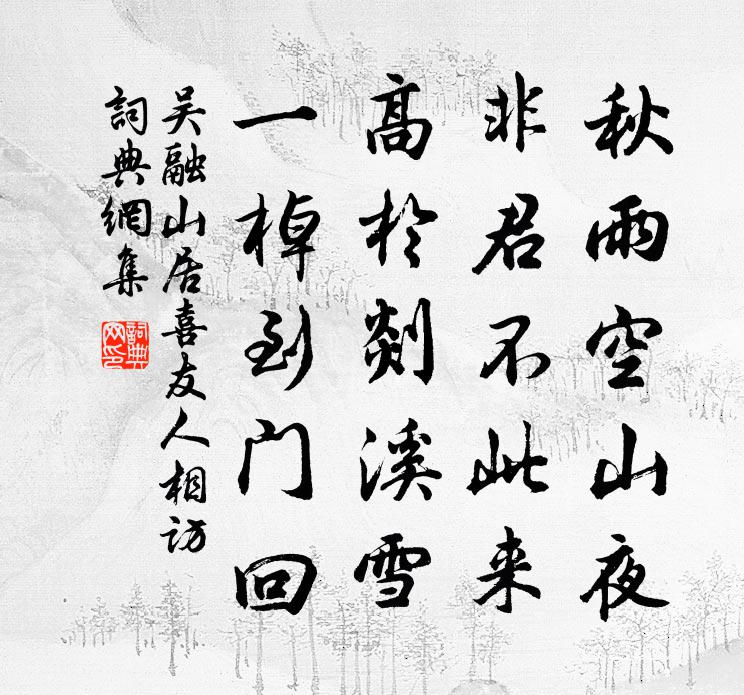 秋雨空山夜
非君不此来
高於剡溪雪
一棹到门回
吴融山居喜友人相访
詞典網集
詞典网印